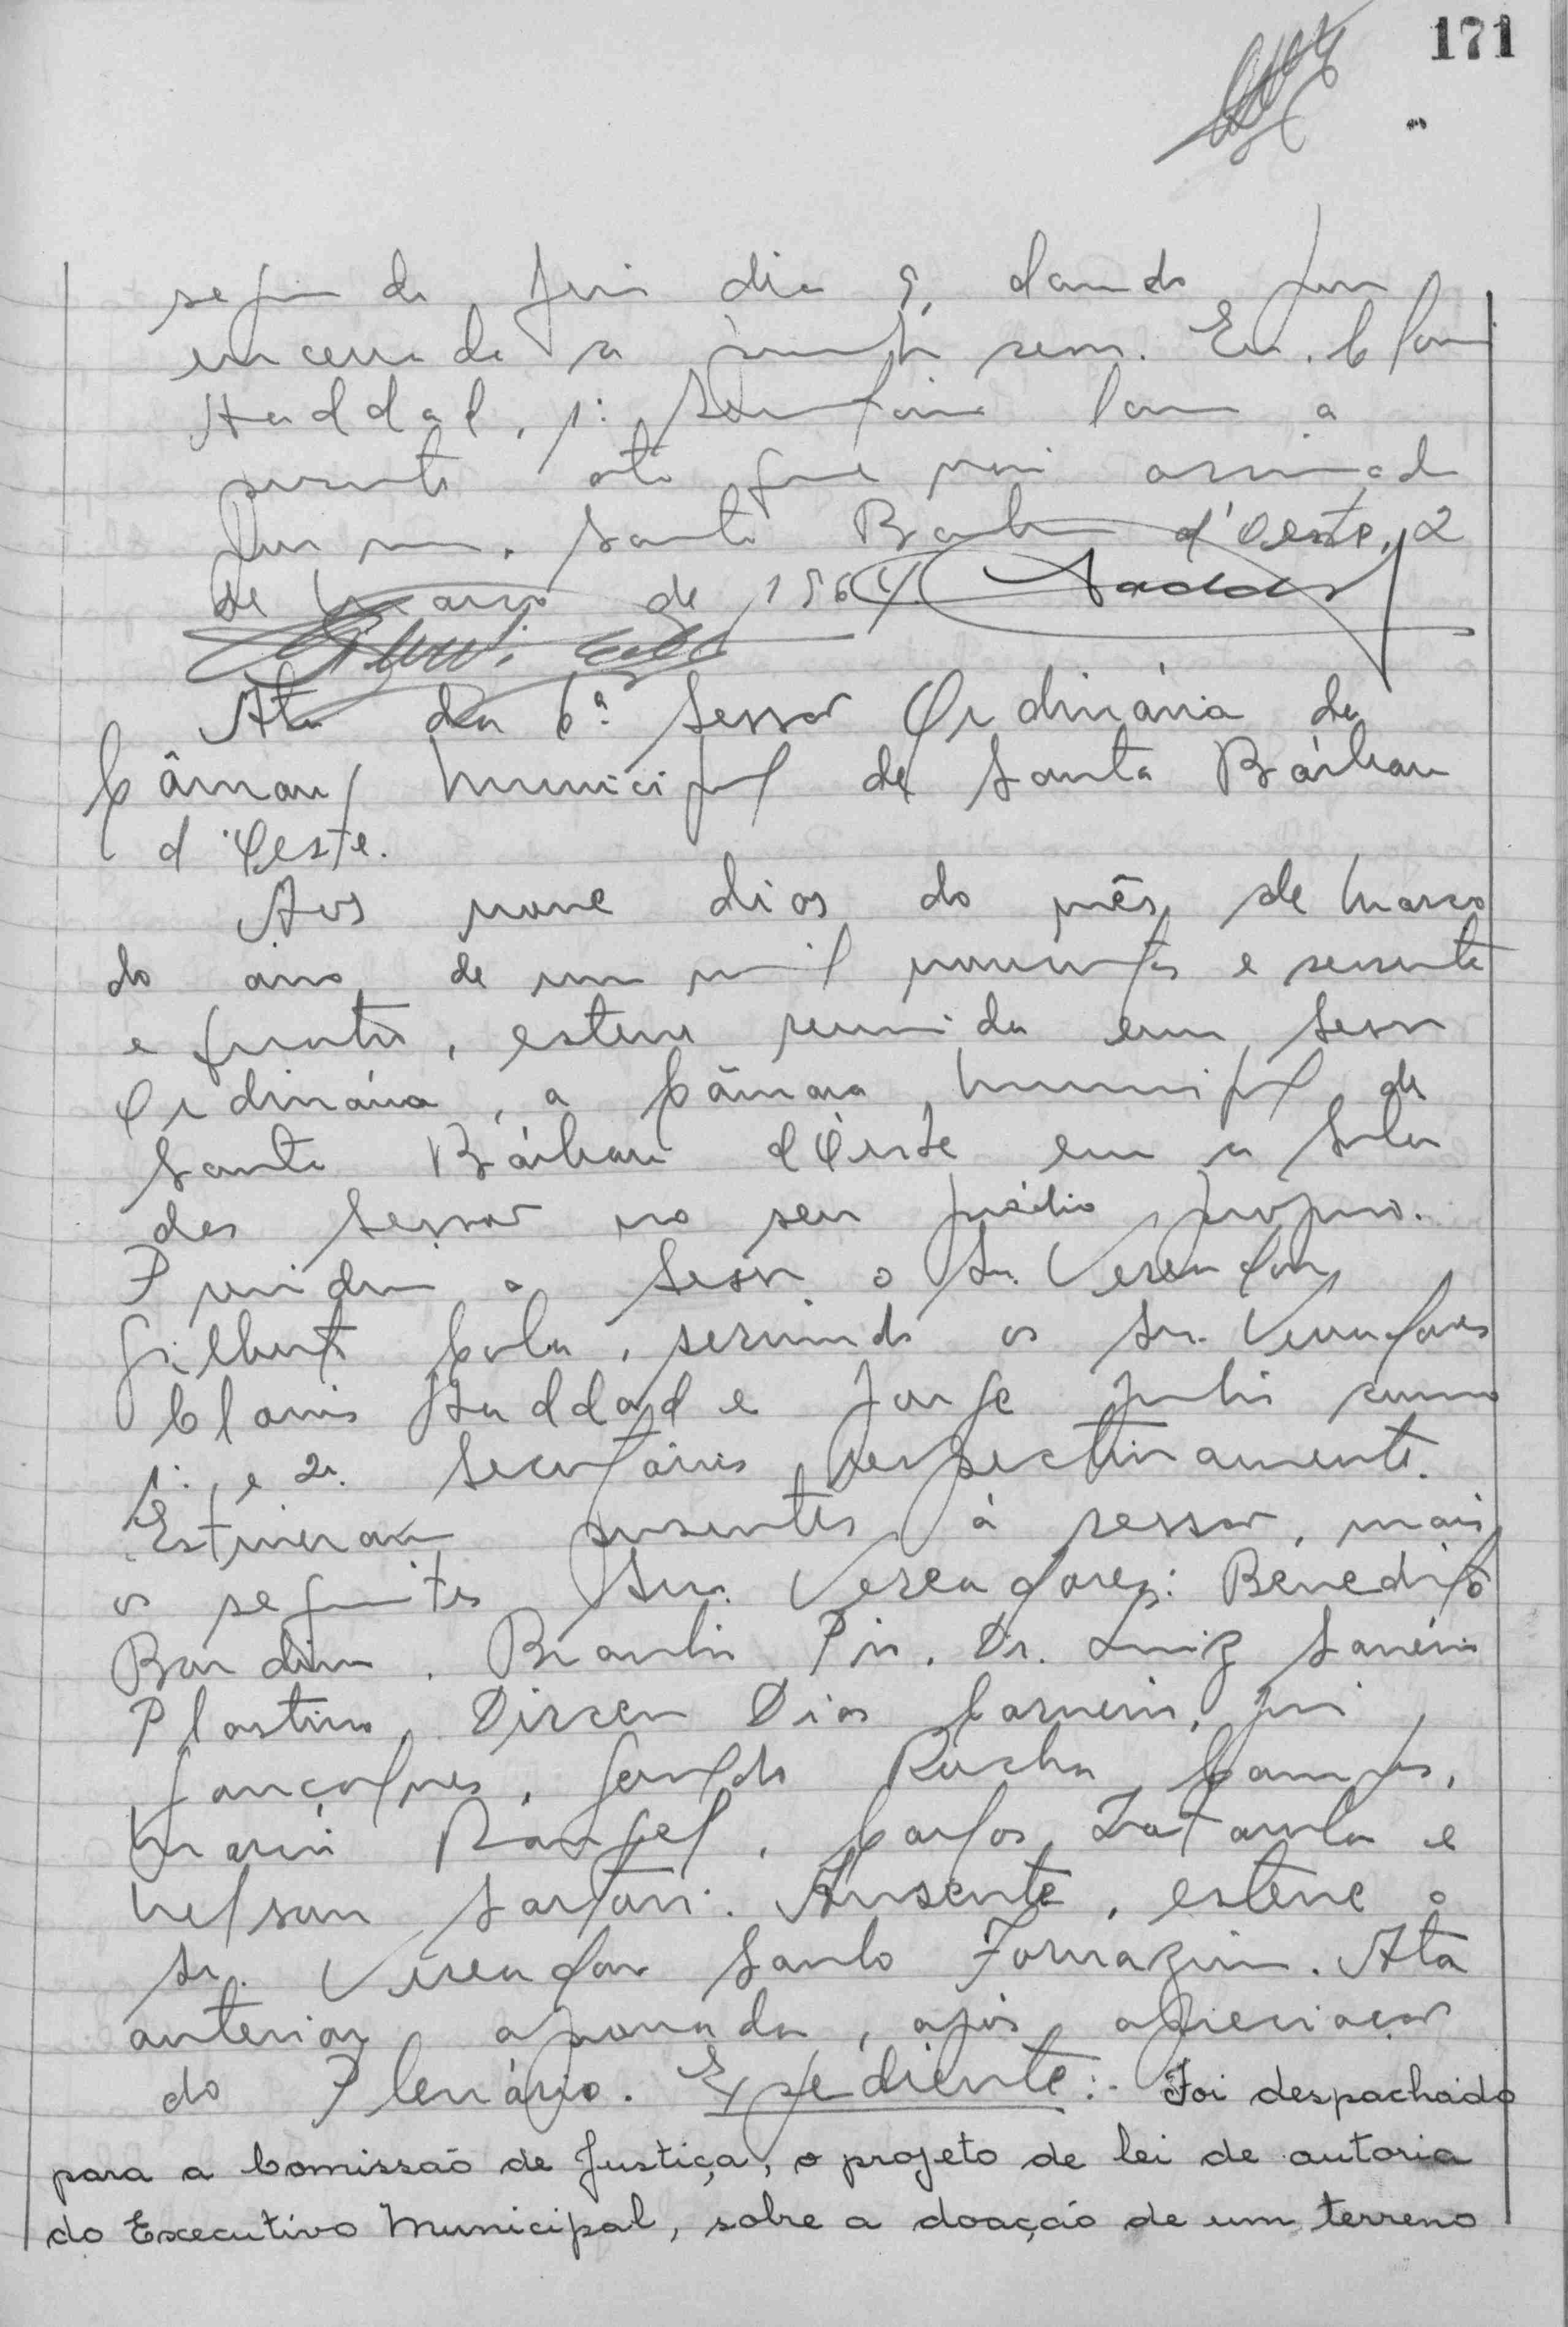 171
segunda feira dia 9, dando por
encerrada a presente sessão. Eu, Clovis
Haddad, 1º Secretário lavrei a
presente ata que vai assinada
por mim. Santa Barbara d'Oeste, 2
de março de 1964. Haddad
Ata da 6ª Sessão Ordinária da
Câmara Municipal de Santa Bárbara
d'Oeste.
Aos nove dias do mês de Março
do ano de um mil novecentos e sessenta
e quatro, esteve reunida em Sessão
Ordinária, a Câmara Municipal de
Santa Bárbara d'Oeste em a Sala
das Sessões no seu prédio próprio.
Presidiu a Sessão o Sr. Vereador
Gilberto, servindo os Srs. Vereadores
Clovis Haddad e Jorge como
1º e 2º Secretários respectivamente.
Estiveram presentes à sessão, mais
os seguintes Srs. Vereadores: Benedito
Dr. Luiz
Dirceu Dias Carneiro,
Gonçalves, Geraldo Rocha Campos,
Rangel, Carlos e
Nelson Sartori. Ausente, esteve o
Sr. Vereador Santo Fornazim. Ata
anterior aprovada, após apreciação
do Plenário. Expediente:- Foi despachado
para a Comissão de Justiça, o projeto de lei de autoria
do Executivo Municipal, sobre a doação de um terreno